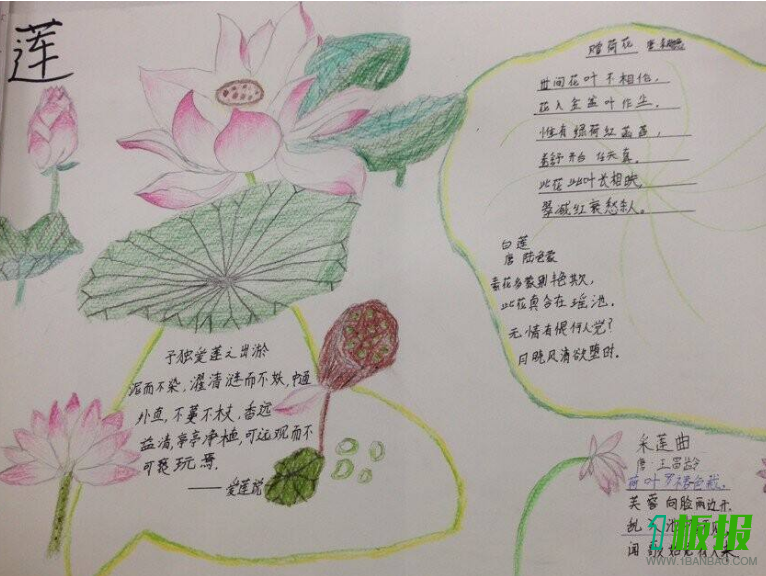 莲
予独爱莲之出淤
泥而不染，濯清涟而不妖，中通
外直，不蔓不枝，香远
益清，亭亭净植，可远观而不
可亵玩焉.
——爱莲说
赠荷花
世间花叶不相伦，
花入金盆叶作尘。
惟有绿荷红菡萏，
卷舒开合任天真。
此花此叶长相映
翠减红衰愁杀人。
白莲
唐 陆龟蒙
素花多蒙别艳欺，
此花真合在瑶池.
无情有恨何人觉?
月晓风清欲堕时.
采莲曲
唐 王昌龄
荷叶罗裙色裁，
芙蓉向脸两边开，
乱入池
闻歌始 有人来
1板报
WWW.1BANBAO.COM